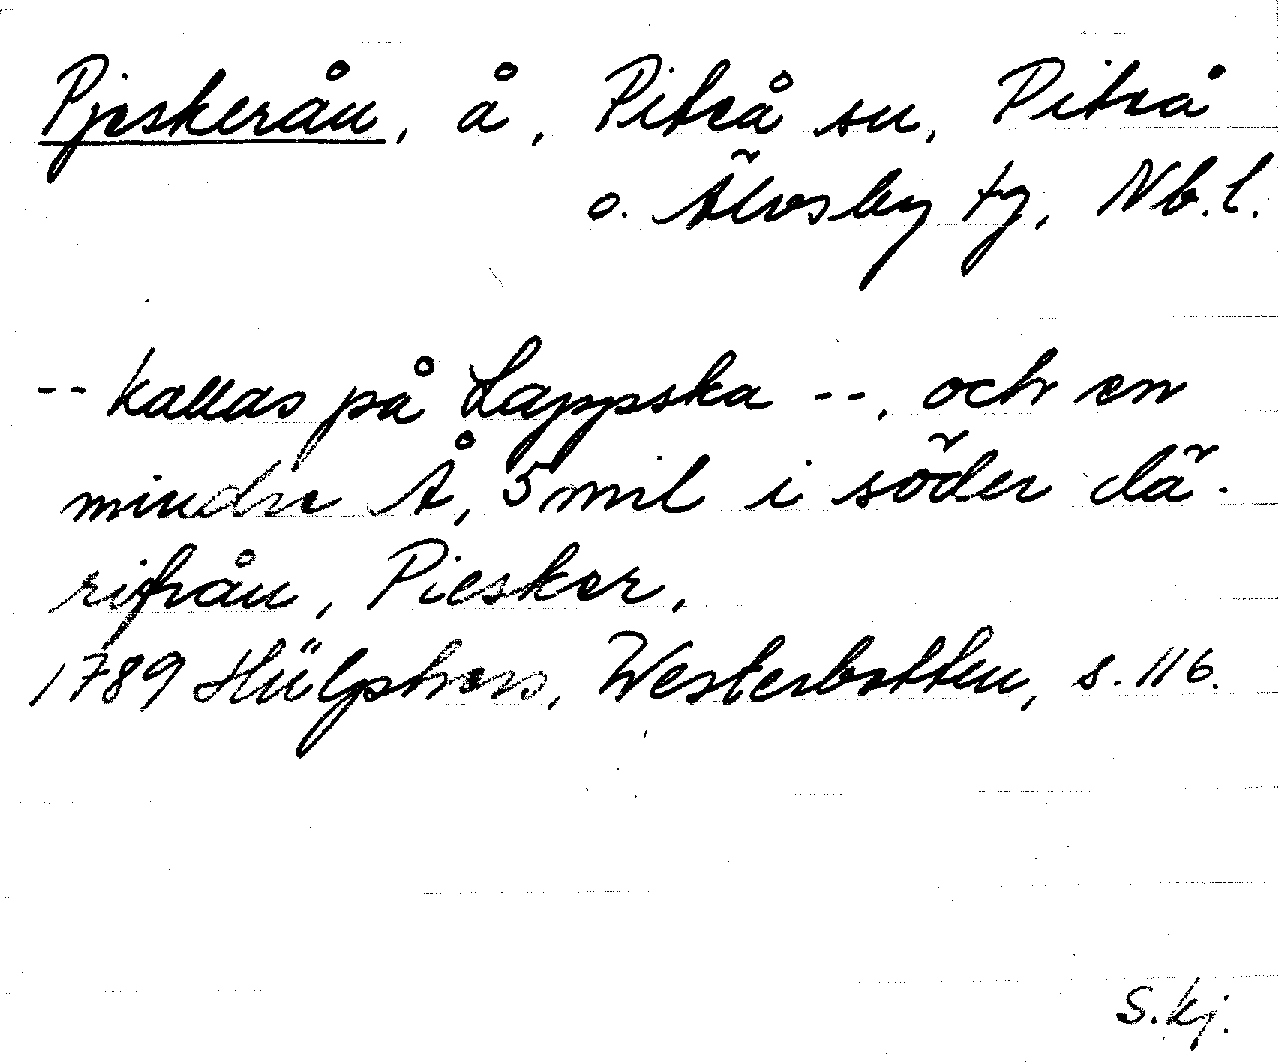 Pjeskerån, å, Piteå sn, Piteå
o. Älvsby tg, Nb.l.
-- kallas på Lappska --, och en
mindre Å, 5 mil i söder dä-
rifrån, Piesker,
1789 Hülphers, Westerbotten, s. 116.
S.kj.